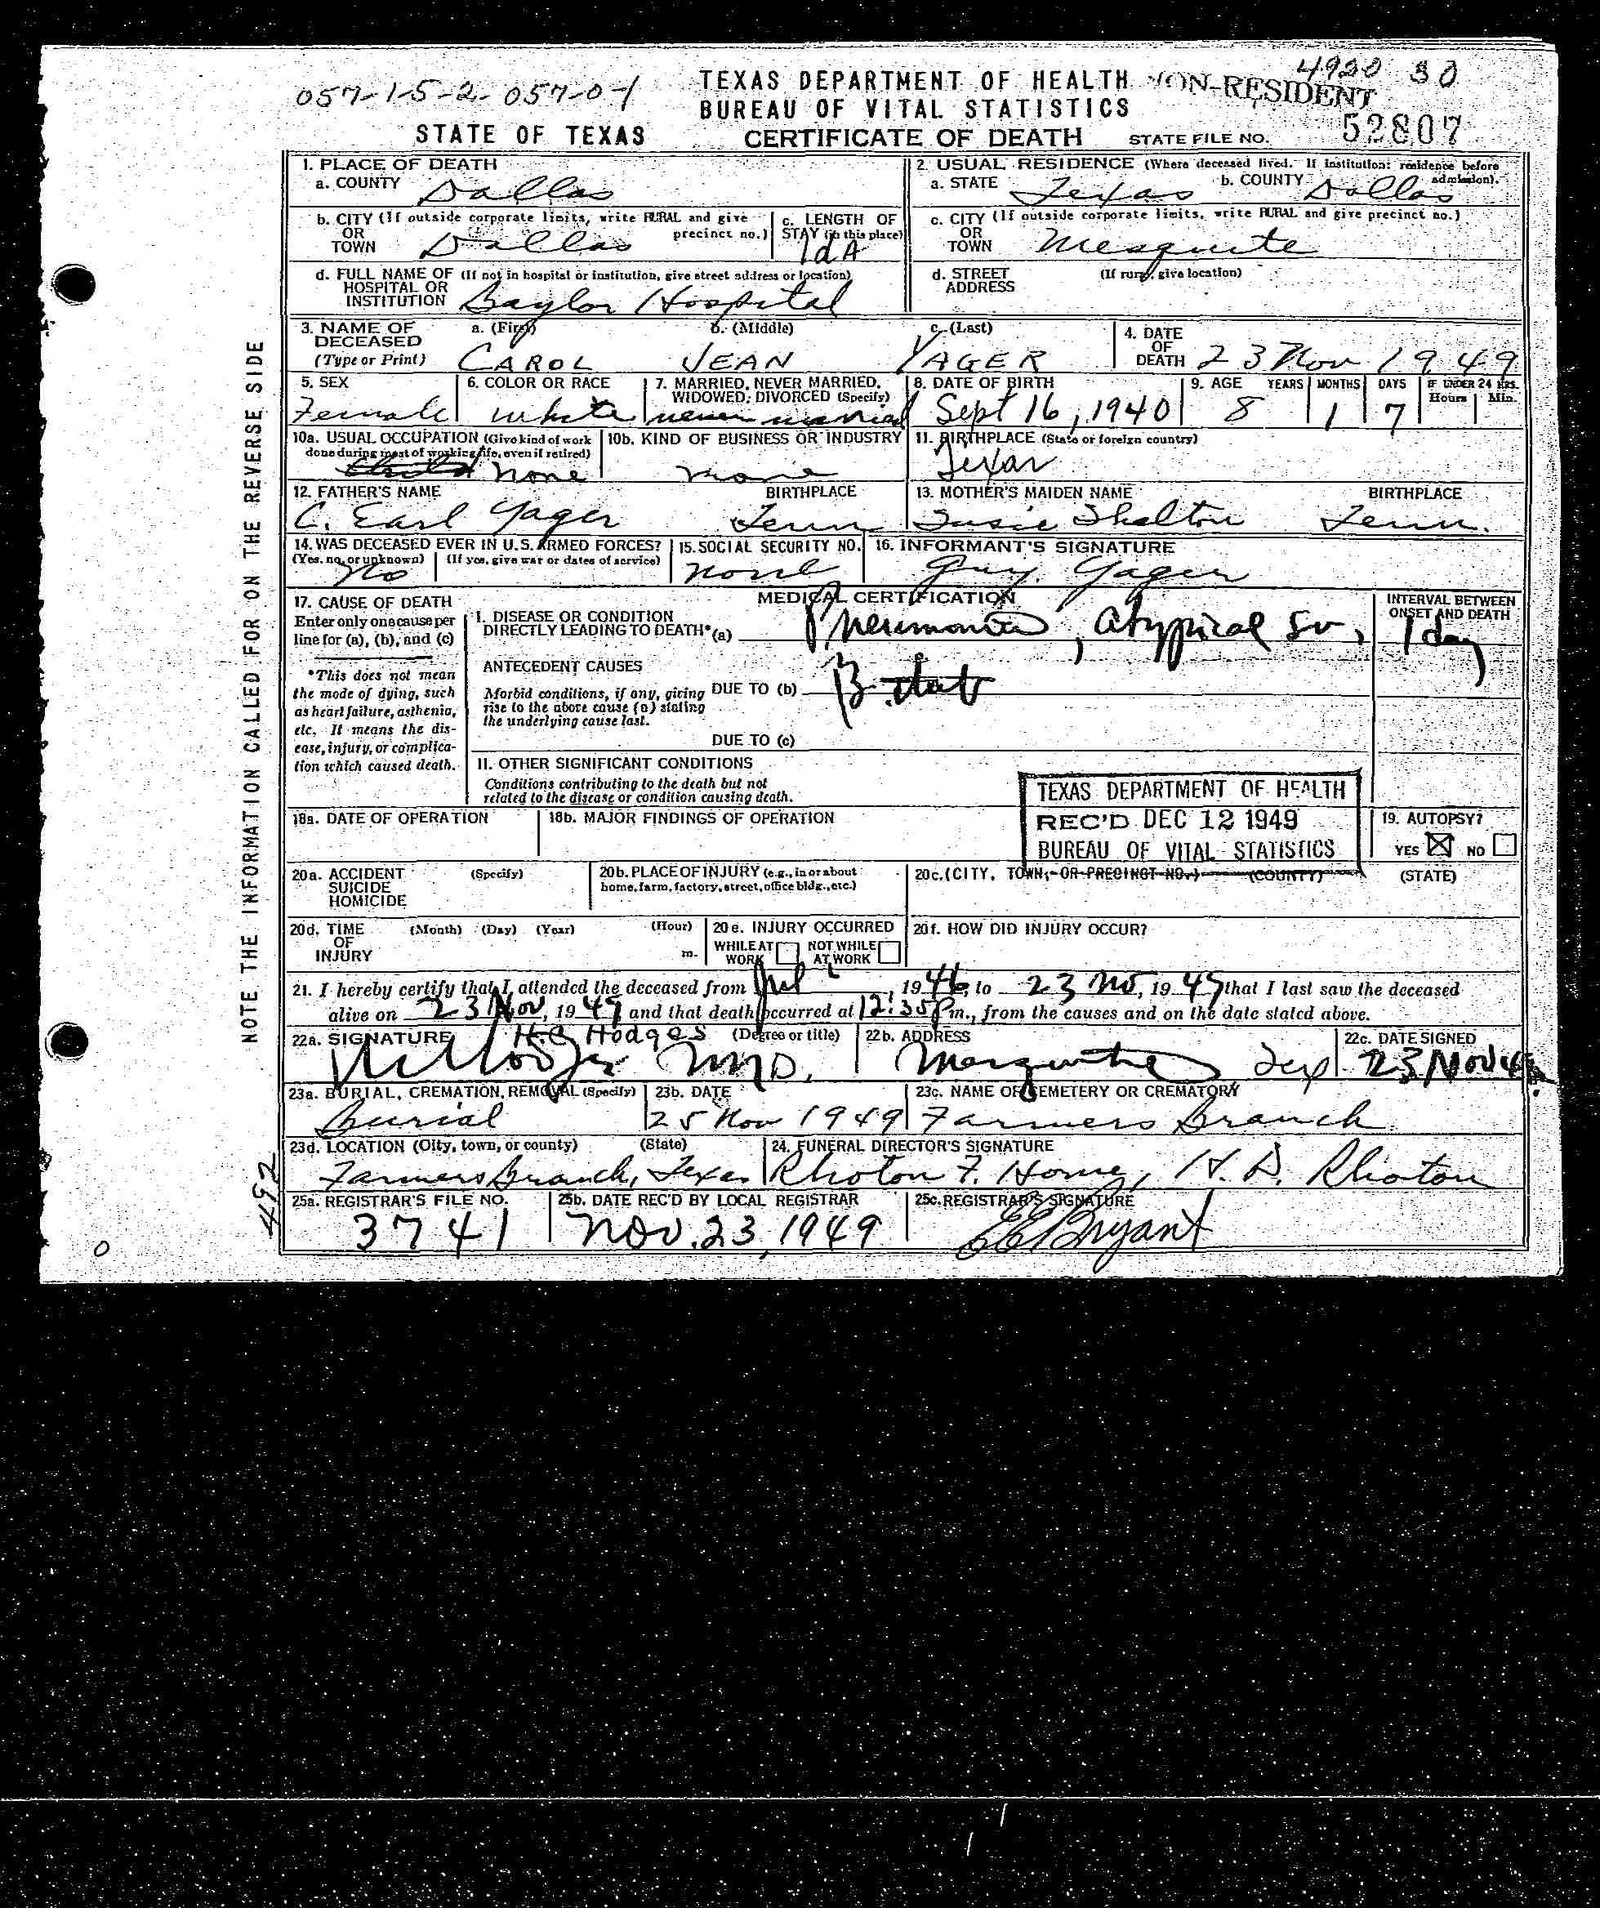 4920 30
057-1-5-2 057-0-1
TEXAS DEPARTMENT OF HEALTH NON-RESIDENT
BUREAU OF VITAL STATISTICS
STATE OF TEXAS CERTIFICATE OF DEATH STATE FILE NO. 52807
NOTE THE INFORMATION CALLED FOR ON THE REVERSE SIDE
1. PLACE OF DEATH
a. COUNTY Dallas
2. USUAL RESIDENCE (Where deceased lived. If institution: residence before admission).
a. STATE Texas b. COUNTY Dallas
b. CITY (If outside corporate limits, write RURAL and give precinct no.)
OR
TOWN Dallas
c. LENGTH OF
STAY (in this place)
1dA
c. CITY (If outside corporate limits, write RURAL and give precinct no.)
OR
TOWN Mesquite
d. FULL NAME OF (If not in hospital or institution, give street address or location)
HOSPITAL OR
INSTITUTION Baylor Hospital
d. STREET (If rural, give location)
ADDRESS
3. NAME OF DECEASED a. (First) b. (Middle) c. (Last)
(Type or Print) CAROL JEAN YAGER
4. DATE
OF
DEATH 23 Nov 1949
5. SEX
Female
6. COLOR OR RACE
white
7. MARRIED, NEVER MARRIED,
WIDOWED, DIVORCED (Specify)
never married
8. DATE OF BIRTH
Sept 16, 1940
9. AGE YEARS MONTHS DAYS IF UNDER 24 HRS.
Hours Min.
8 1 7
10a. USUAL OCCUPATION (Give kind of work
done during most of working life, even if retired)
None
10b. KIND OF BUSINESS OR INDUSTRY
none
11. BIRTHPLACE (State or foreign country)
Texas
12. FATHER'S NAME BIRTHPLACE
C. Earl Yager Tenn
13. MOTHER'S MAIDEN NAME BIRTHPLACE
Susie Shelton Tenn.
14. WAS DECEASED EVER IN U.S. ARMED FORCES?
(Yes, no, or unknown) (If yes, give war or dates of service)
No
15. SOCIAL SECURITY NO.
None
16. INFORMANT'S SIGNATURE
Guy Yager
17. CAUSE OF DEATH
Enter only one cause per
line for (a), (b), and (c)
*This does not mean
the mode of dying, such
as heart failure, asthenia,
etc. It means the dis-
ease, injury, or complica-
tion which caused death.
MEDICAL CERTIFICATION
I. DISEASE OR CONDITION
DIRECTLY LEADING TO DEATH* (a) Pneumonia, atypical
INTERVAL BETWEEN
ONSET AND DEATH
1 day
ANTECEDENT CAUSES
Morbid conditions, if any, giving
rise to the above cause (a) stating
the underlying cause last.
DUE TO (b)
DUE TO (c)
II. OTHER SIGNIFICANT CONDITIONS
Conditions contributing to the death but not
related to the disease or condition causing death.
TEXAS DEPARTMENT OF HEALTH
REC'D DEC 12 1949
BUREAU OF VITAL STATISTICS
18a. DATE OF OPERATION
18b. MAJOR FINDINGS OF OPERATION
19. AUTOPSY?
YES NO
20a. ACCIDENT (Specify)
SUICIDE
HOMICIDE
20b. PLACE OF INJURY (e.g., in or about
home, farm, factory, street, office bldg., etc.)
20c. (CITY, TOWN, OR PRECINCT NO.) (COUNTY) (STATE)
20d. TIME (Month) (Day) (Year) (Hour)
OF
INJURY m.
20e. INJURY OCCURRED
WHILE AT WORK NOT WHILE AT WORK
20f. HOW DID INJURY OCCUR?
21. I hereby certify that I attended the deceased from 1946, to 23 Nov, 1949 that I last saw the deceased
alive on 23 Nov, 1949 and that death occurred at 12:35 P m., from the causes and on the date stated above.
22a. SIGNATURE H.C. Hodges (Degree or title)
HC Hodges M.D.
22b. ADDRESS
Mesquite Tex
22c. DATE SIGNED
23 Nov 49
23a. BURIAL, CREMATION, REMOVAL (Specify)
Burial
23b. DATE
25 Nov 1949
23c. NAME OF CEMETERY OR CREMATORY
Farmers Branch
23d. LOCATION (City, town, or county) (State)
Farmers Branch, Texas
24. FUNERAL DIRECTOR'S SIGNATURE
Rhoton F. Home, H. D. Rhoton
25a. REGISTRAR'S FILE NO.
3741
25b. DATE REC'D BY LOCAL REGISTRAR
Nov. 23, 1949
25c. REGISTRAR'S SIGNATURE
EE Bryant
492